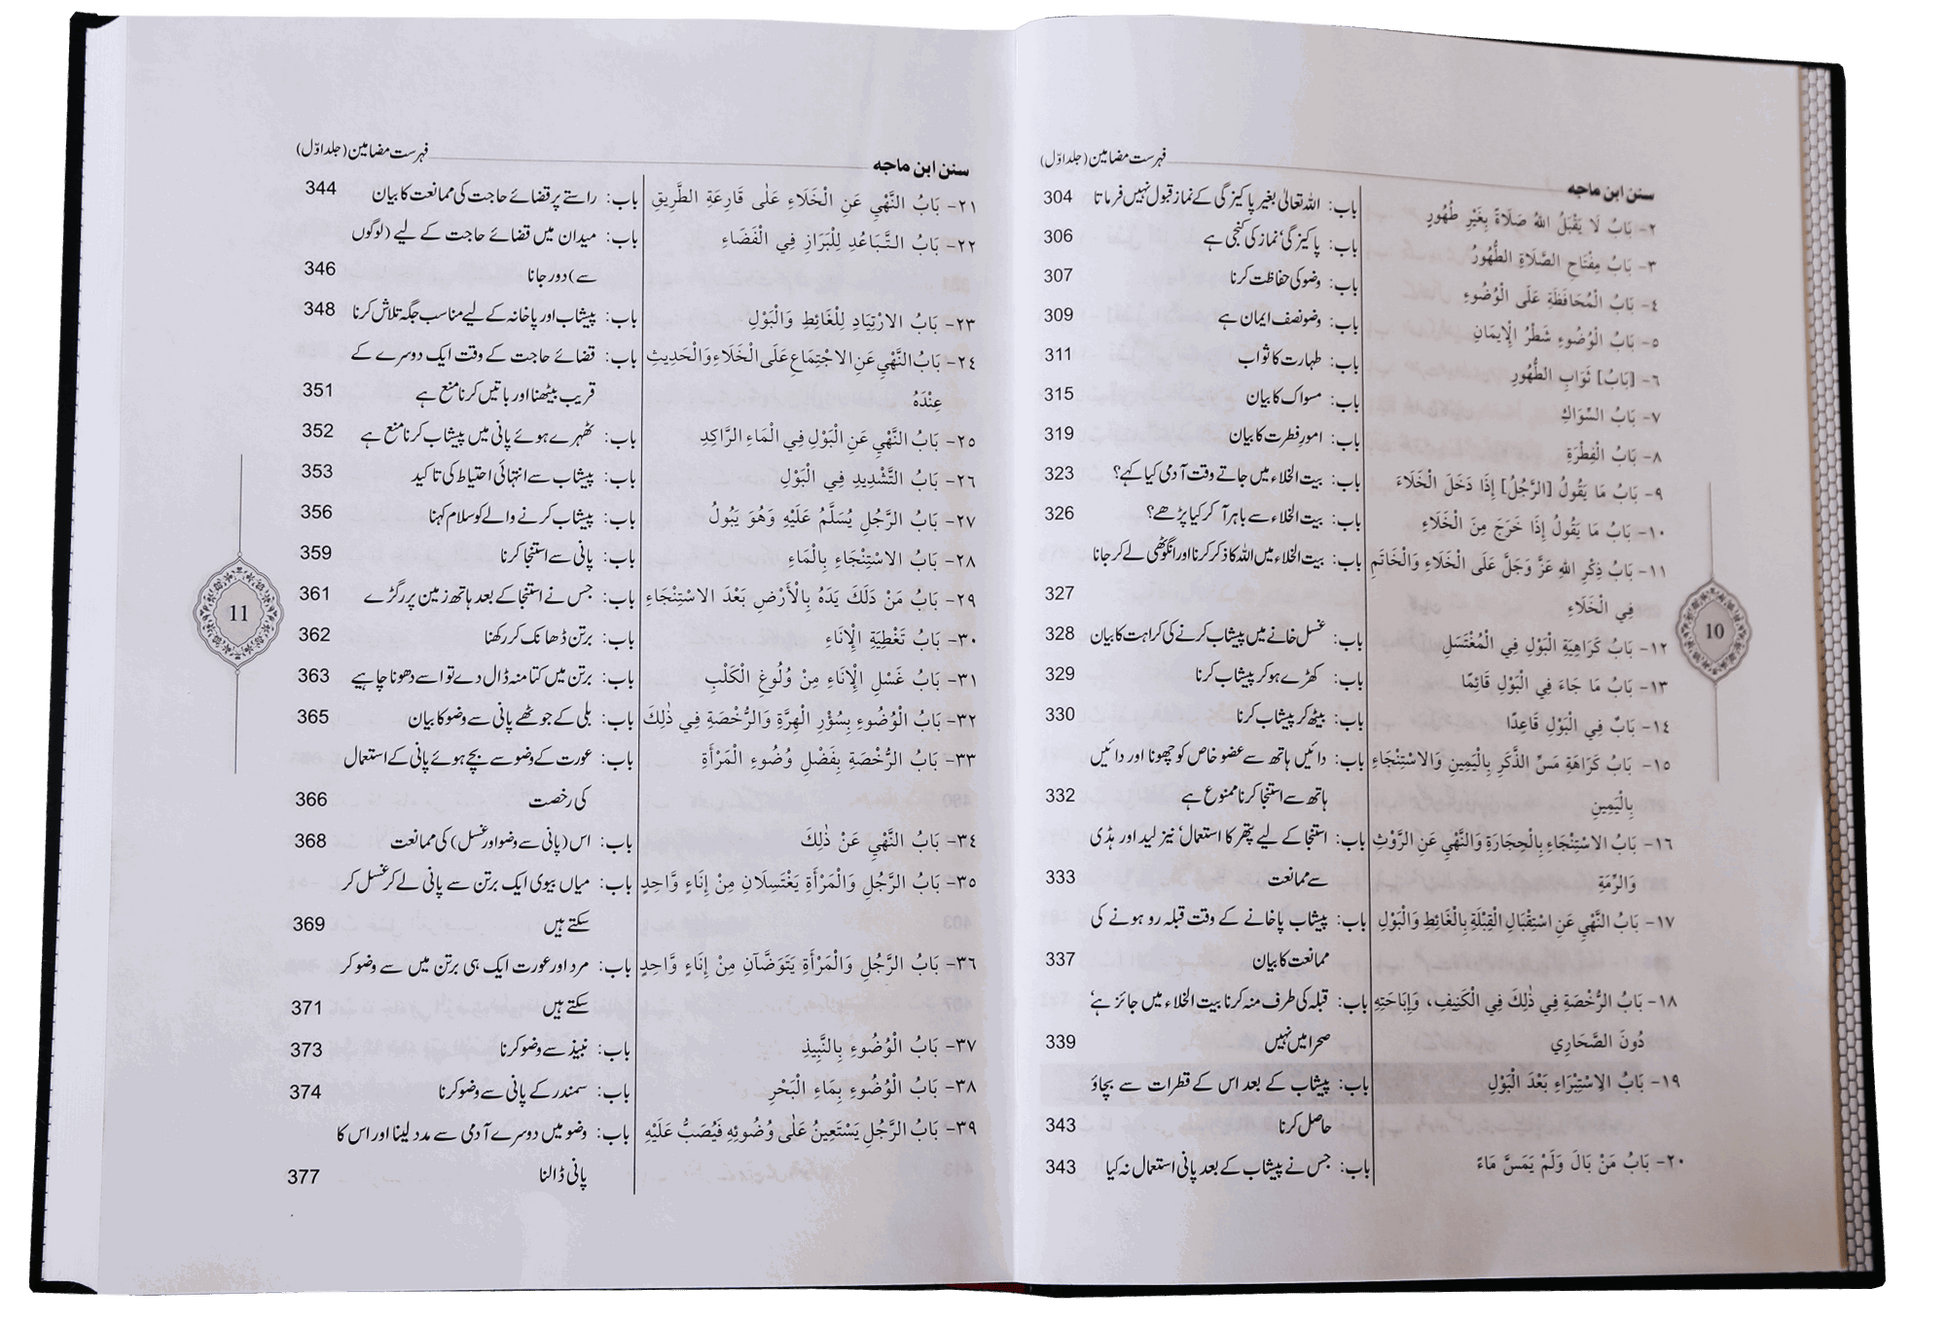 سنن ابن ماجه فہرست مضامین (جلد اوّل)
٢- بَابُ لَا يَقْبَلُ اللهُ صَلَاةً بِغَيْرِ طُهُورٍ باب: اللہ تعالیٰ بغیر پاکیزگی کے نماز قبول نہیں فرماتا 304
٣- بَابُ مِفْتَاحِ الصَّلَاةِ الطُّهُورُ باب: پاکیزگی‘ نماز کی کنجی ہے 306
٤- بَابُ الْمُحَافَظَةِ عَلَى الْوُضُوءِ باب: وضو کی حفاظت کرنا 307
٥- بَابُ الْوُضُوءِ شَطْرُ الْإِيمَانِ باب: وضو نصف ایمان ہے 309
٦- [بَابُ] ثَوَابِ الطُّهُورِ باب: طہارت کا ثواب 311
٧- بَابُ السِّوَاكِ باب: مسواک کا بیان 315
٨- بَابُ الْفِطْرَةِ باب: امور فطرت کا بیان 319
٩- بَابُ مَا يَقُولُ [الرَّجُلُ] إِذَا دَخَلَ الْخَلَاءَ باب: بیت الخلاء میں جاتے وقت آدمی کیا کہے؟ 323
١٠- بَابُ مَا يَقُولُ إِذَا خَرَجَ مِنَ الْخَلَاءِ باب: بیت الخلاء سے باہر آ کر کیا پڑھے؟ 326
١١- بَابُ ذِكْرِ اللهِ عَزَّ وَجَلَّ عَلَى الْخَلَاءِ وَالْخَاتَمِ باب: بیت الخلاء میں اللہ کا ذکر کرنا اور انگوٹھی لے کر جانا
فِي الْخَلَاءِ 327
١٢- بَابُ كَرَاهِيَةِ الْبَوْلِ فِي الْمُغْتَسَلِ باب: غسل خانے میں پیشاب کرنے کی کراہت کا بیان 328
١٣- بَابُ مَا جَاءَ فِي الْبَوْلِ قَائِمًا باب: کھڑے ہو کر پیشاب کرنا 329
١٤- بَابٌ فِي الْبَوْلِ قَاعِدًا باب: بیٹھ کر پیشاب کرنا 330
١٥- بَابُ كَرَاهَةِ مَسِّ الذَّكَرِ بِالْيَمِينِ وَالِاسْتِنْجَاءِ باب: دائیں ہاتھ سے عضو خاص کو چھونا اور دائیں
بِالْيَمِينِ ہاتھ سے استنجا کرنا ممنوع ہے 332
١٦- بَابُ الاسْتِنْجَاءِ بِالْحِجَارَةِ وَالنَّهْيِ عَنِ الرَّوْثِ باب: استنجا کے لیے پتھر کا استعمال‘ نیز لید اور ہڈی
وَالرِّمَّةِ سے ممانعت 333
١٧- بَابُ النَّهْيِ عَنِ اسْتِقْبَالِ الْقِبْلَةِ بِالْغَائِطِ وَالْبَوْلِ باب: پیشاب پاخانے کے وقت قبلہ رو ہونے کی
ممانعت کا بیان 337
١٨- بَابُ الرُّخْصَةِ فِي ذٰلِكَ فِي الْكَنِيفِ، وَإِبَاحَتِهِ باب: قبلہ کی طرف منہ کرنا بیت الخلاء میں جائز ہے‘
دُونَ الصَّحَارِي صحرا میں نہیں 339
١٩- بَابُ الِاسْتِبْرَاءِ بَعْدَ الْبَوْلِ باب: پیشاب کے بعد اس کے قطرات سے بچاؤ
حاصل کرنا 343
٢٠- بَابُ مَنْ بَالَ وَلَمْ يَمَسَّ مَاءً باب: جس نے پیشاب کے بعد پانی استعمال نہ کیا 343
10
سنن ابن ماجه فہرست مضامین (جلد اوّل)
٢١- بَابُ النَّهْيِ عَنِ الْخَلَاءِ عَلٰى قَارِعَةِ الطَّرِيقِ باب: راستے پر قضائے حاجت کی ممانعت کا بیان 344
٢٢- بَابُ التَّبَاعُدِ لِلْبَرَازِ فِي الْفَضَاءِ باب: میدان میں قضائے حاجت کے لیے (لوگوں
سے) دور جانا 346
٢٣- بَابُ الارْتِيَادِ لِلْغَائِطِ وَالْبَوْلِ باب: پیشاب اور پاخانہ کے لیے مناسب جگہ تلاش کرنا 348
٢٤- بَابُ النَّهْيِ عَنِ الاجْتِمَاعِ عَلَى الْخَلَاءِ وَالْحَدِيثِ باب: قضائے حاجت کے وقت ایک دوسرے کے
عِنْدَهُ قریب بیٹھنا اور باتیں کرنا منع ہے 351
٢٥- بَابُ النَّهْيِ عَنِ الْبَوْلِ فِي الْمَاءِ الرَّاكِدِ باب: ٹھہرے ہوئے پانی میں پیشاب کرنا منع ہے 352
٢٦- بَابُ التَّشْدِيدِ فِي الْبَوْلِ باب: پیشاب سے انتہائی احتیاط کی تاکید 353
٢٧- بَابُ الرَّجُلِ يُسَلَّمُ عَلَيْهِ وَهُوَ يَبُولُ باب: پیشاب کرنے والے کو سلام کہنا 356
٢٨- بَابُ الاسْتِنْجَاءِ بِالْمَاءِ باب: پانی سے استنجا کرنا 359
٢٩- بَابُ مَنْ دَلَكَ يَدَهُ بِالْأَرْضِ بَعْدَ الاسْتِنْجَاءِ باب: جس نے استنجا کے بعد ہاتھ زمین پر رگڑے 361
٣٠- بَابُ تَغْطِيَةِ الْإِنَاءِ باب: برتن ڈھانک کر رکھنا 362
٣١- بَابُ غَسْلِ الْإِنَاءِ مِنْ وُلُوغِ الْكَلْبِ باب: برتن میں کتا منہ ڈال دے تو اسے دھونا چاہیے 363
٣٢- بَابُ الْوُضُوءِ بِسُؤْرِ الْهِرَّةِ وَالرُّخْصَةِ فِي ذٰلِكَ باب: بلی کے جوٹھے پانی سے وضو کا بیان 365
٣٣- بَابُ الرُّخْصَةِ بِفَضْلِ وُضُوءِ الْمَرْأَةِ باب: عورت کے وضو سے بچے ہوئے پانی کے استعمال
کی رخصت 366
٣٤- بَابُ النَّهْيِ عَنْ ذٰلِكَ باب: اس (پانی سے وضو اور غسل) کی ممانعت 368
٣٥- بَابُ الرَّجُلِ وَالْمَرْأَةِ يَغْتَسِلَانِ مِنْ إِنَاءٍ وَّاحِدٍ باب: میاں بیوی ایک برتن سے پانی لے کر غسل کر
سکتے ہیں 369
٣٦- بَابُ الرَّجُلِ وَالْمَرْأَةِ يَتَوَضَّآنِ مِنْ إِنَاءٍ وَّاحِدٍ باب: مرد اور عورت ایک ہی برتن میں سے وضو کر
سکتے ہیں 371
٣٧- بَابُ الْوُضُوءِ بِالنَّبِيذِ باب: نبیذ سے وضو کرنا 373
٣٨- بَابُ الْوُضُوءِ بِمَاءِ الْبَحْرِ باب: سمندر کے پانی سے وضو کرنا 374
٣٩- بَابُ الرَّجُلِ يَسْتَعِينُ عَلٰى وُضُوئِهِ فَيُصَبُّ عَلَيْهِ باب: وضو میں دوسرے آدمی سے مدد لینا اور اس کا
پانی ڈالنا 377
11